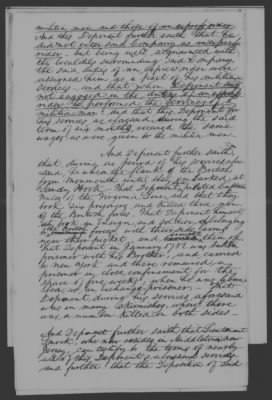 militia men and those of an express rider
And this Deponent further saith that he
did not enter said Company as an express
rider but being well acquainted with
the localities surrounding said Company
the said duties of an express rider were
assigned him as a part of his militia
service and that when Deponent was
not engaged in the duties of an express
rider he performed the services of a
militia man, and that this Deponent for
his services as aforesaid during the said
term of six months received the same
wages as were given to the militia men.
And Deponent further saith,
that during the period of his services afore
said, he when the flank of the British
from Monmouth until they embarked at
Sandy Hook That Deponent piloted Captain
of the Virginia Line and that they
took two prisoners and killed three men
of the British forces That Deponent himself
took an Ensign, and soldier, belonging
to the British forces with their side arms
near their picket and them off.
That Deponent in January 1782 was taken
prisoner with his Brother, and carried
to New York and there remained a
prisoner in close confinement for the
space of five weeks, when he was liber
ated, as an exchanged prisoner. That
Deponent during his services aforesaid
was in many skirmishes, where there
was a number killed on both sides
And Deponent further saith that Lieutenant
who now resides in Middletown New
Jersey, can testify to the terms of nearly
all of this Deponent's aforesaid services
and further that the Deposition of said